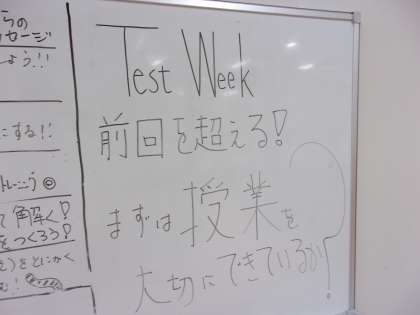 らの
セージ
しよう!!
にする!!
トレーニング◎
て解く!
をつくろう!
る)をとにかく
む!
Test Week
前回を超える!
まずは授業を
大切にできているか?